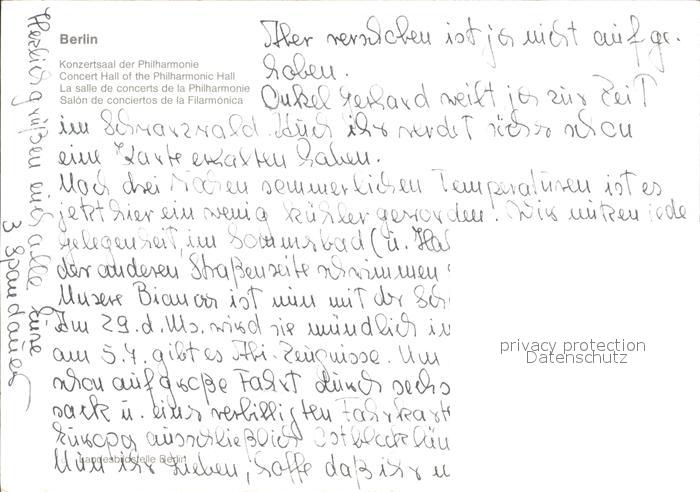 Berlin
Konzertsaal der Philharmonie
Concert Hall of the Philharmonic Hall
La salle de concerts de la Philharmonie
Salón de conciertos de la Filarmónica
Aber verschoben ist ja nicht aufge-
hoben.
Onkel Gerhard weilt ja zur Zeit
im Schwarzwald. Auch ihr werdet sicher schon
eine Karte erhalten haben.
Nach drei Wochen sommerlichen Temperaturen ist es
jetzt hier ein wenig kühler geworden. Wir nutzen jede
Gelegenheit, im Sommerbad (u. Hal
der anderen Straßenseite schwimmen
Unsere Bianca ist nun mit der Sch
Am 29. d. Ms. wird sie mündlich in
am 5.7. gibt es Abi-Zeugnisse. Um
schon auf große Fahrt durch sechs
sack u. eines verbilligten Fahrkart
Europas ausschließlich Ostblocklän
Nun ihr Lieben, hoffe daß ihr
Landesbildstelle Berlin
Herzlich grüßen euch alle eure
3 Spandauer
privacy protection
Datenschutz